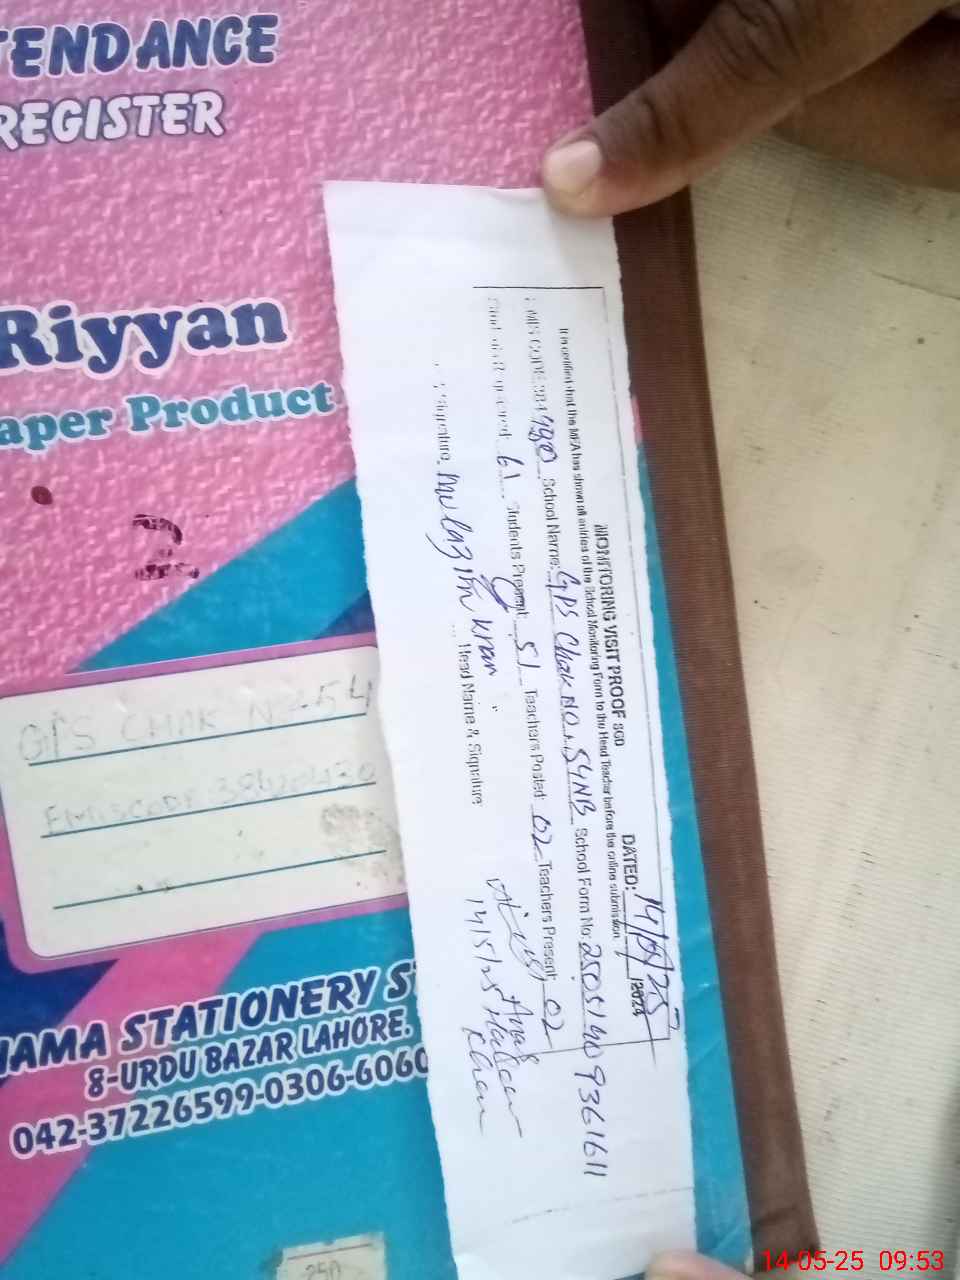 TENDANCE
REGISTER
Riyyan
aper Product
GPS CHAK N 54
EMISCODE
NAMA STATIONERY S
8-URDU BAZAR LAHORE.
042-37226599-0306-6060
MONITORING VISIT PROOF SGD DATED: 14/05/25 /2024
It is certified that the MEA has shown all entries of the School Monitoring Form to the Head Teacher before the online submission.
EMIS CODE: 384 School Name: GPS Chak NO. 54NB School Form No:
Students Registered: 61 Students Present: 51 Teachers Posted: 02 Teachers Present: 02
Signature: Mulazim Khan Head Name & Signature:
14/5/25
Khan
250
14-05-25 09:53